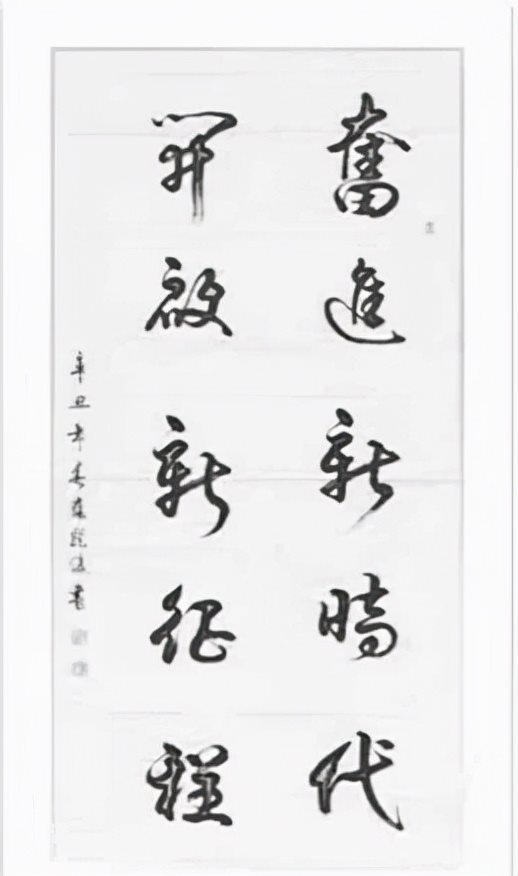 奮進新時代
開啟新征程
辛丑年春